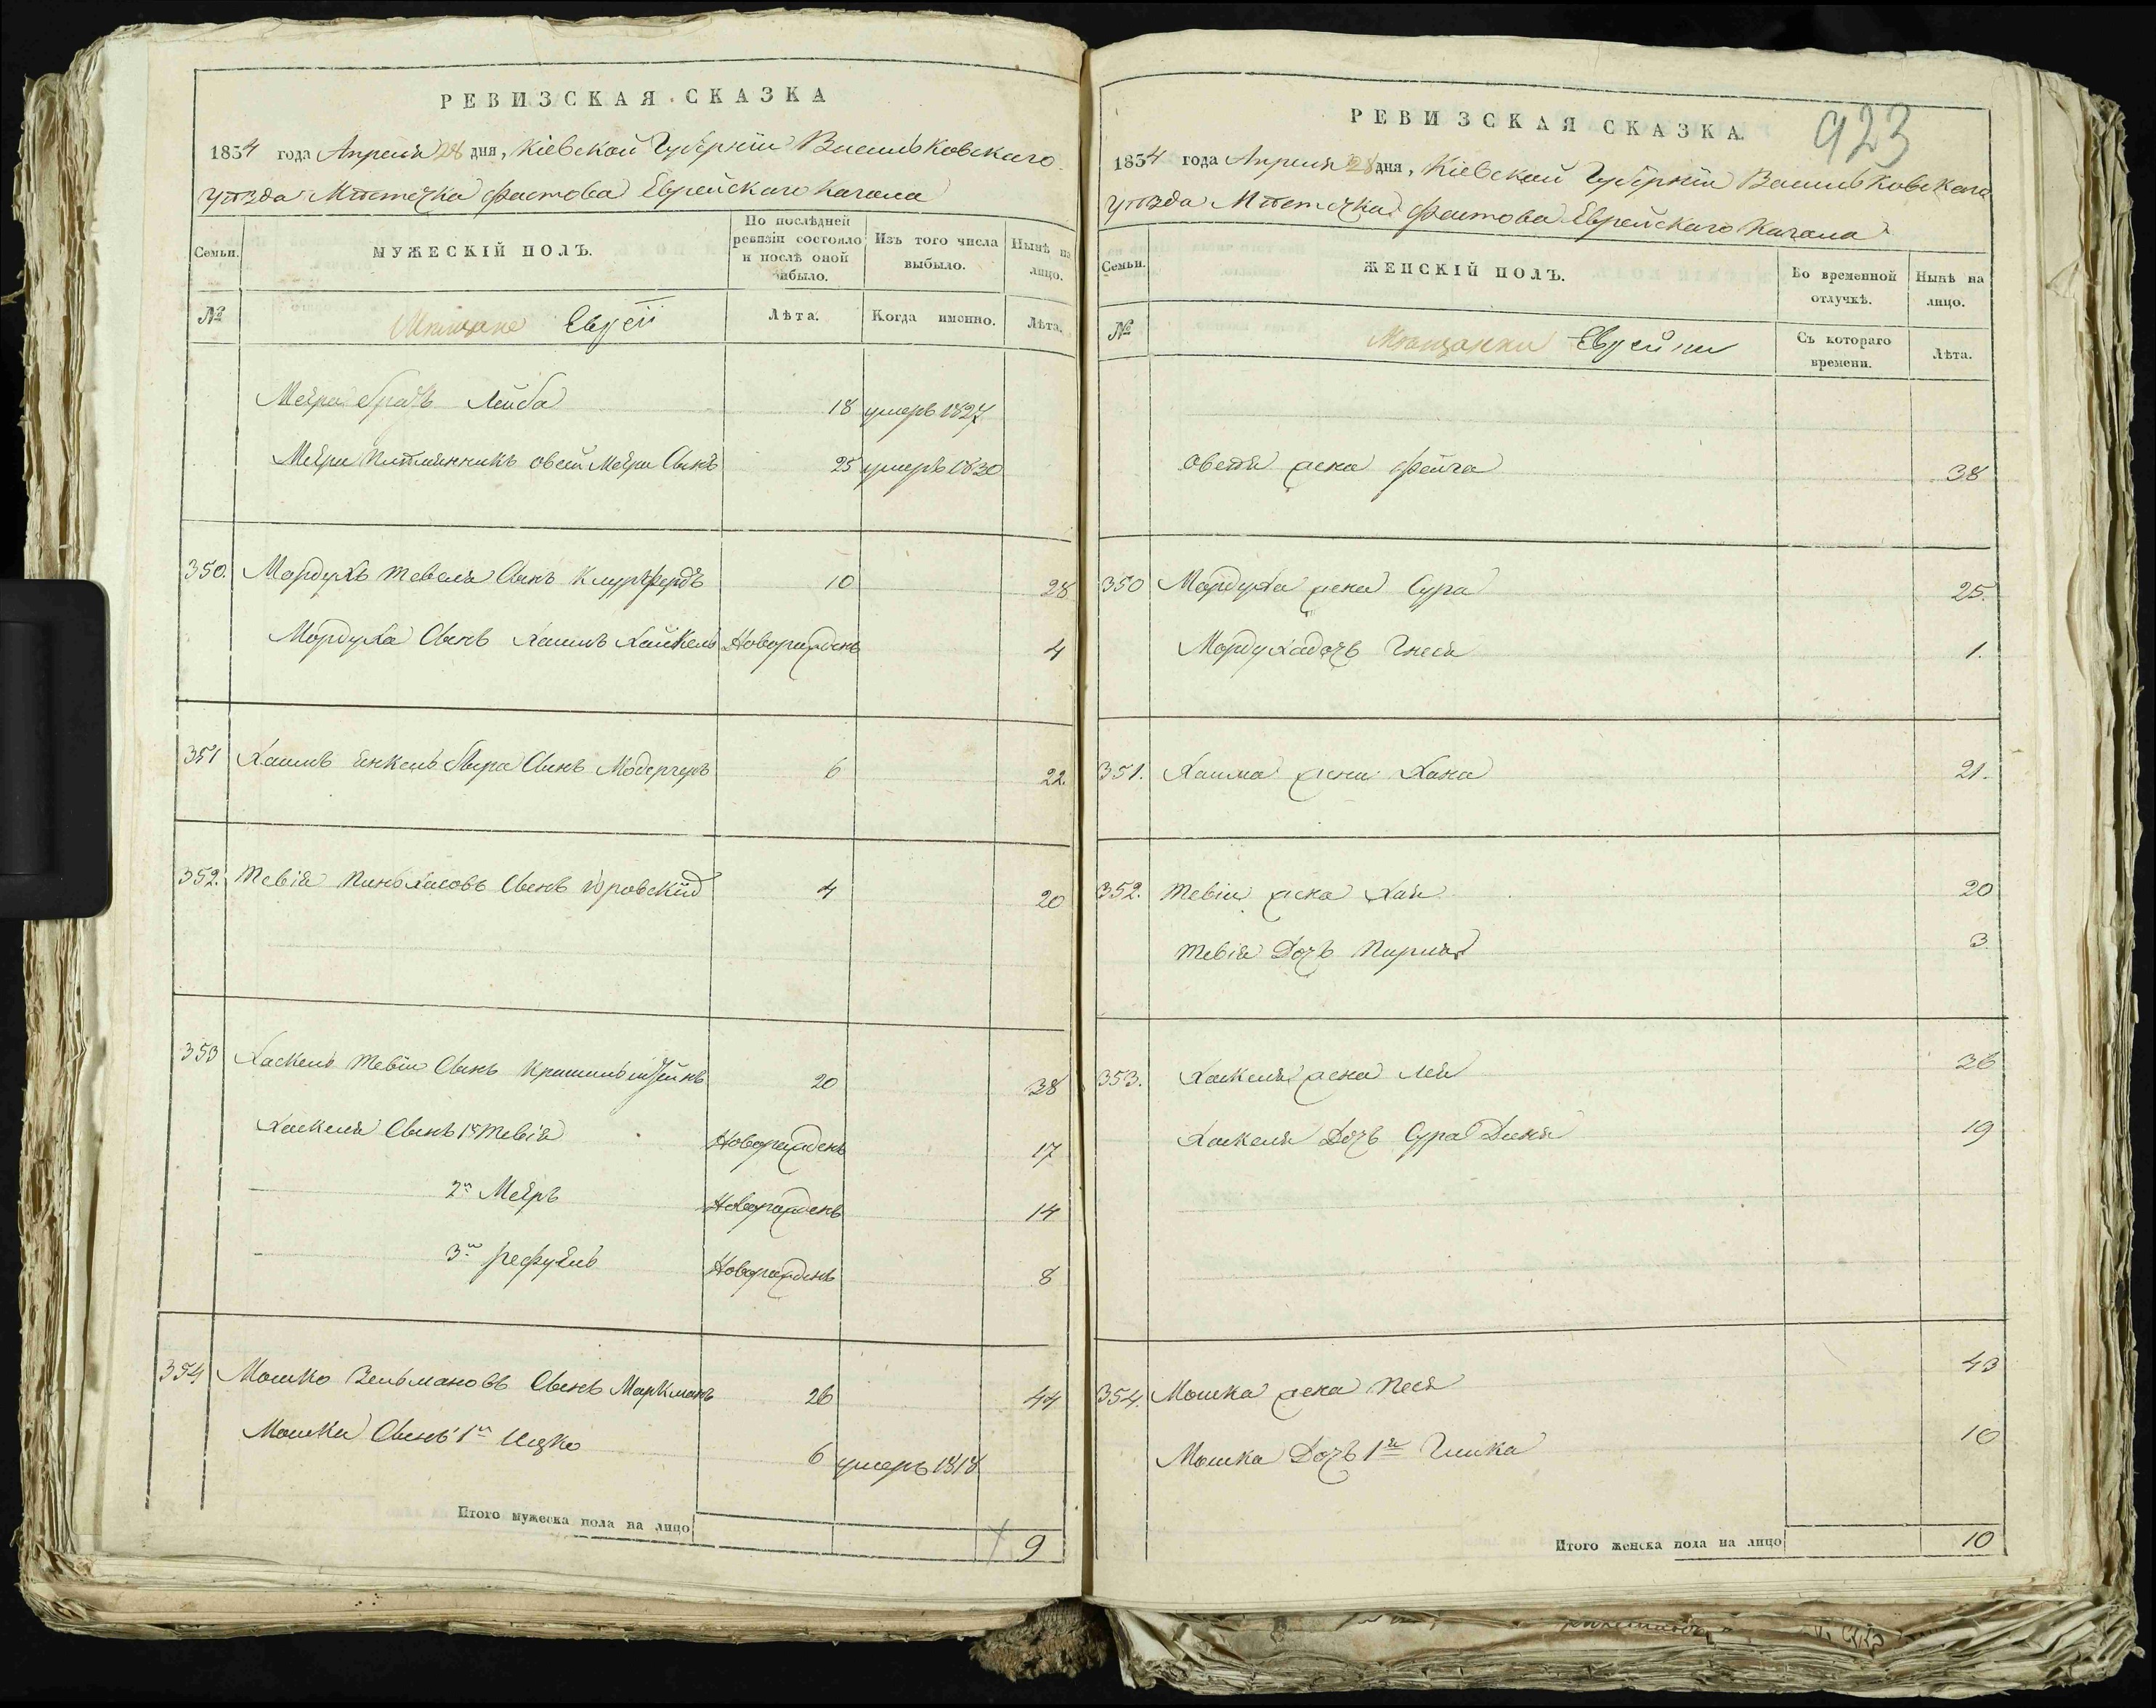 РЕВИЗСКАЯ СКАЗКА
1834 года Апреля 28 дня, Кіевской Губерніи Васильковскаго
уѣзда Мѣстечка Фастова Еврейскаго Кагала
Семьи.
МУЖЕСКІЙ ПОЛЪ.
По послѣдней ревизіи состояло и послѣ оной прибыло.
Изъ того числа выбыло.
Нынѣ на лицо.
№
Мѣщане Евреи
Лѣта.
Когда именно.
Лѣта.
Меера братъ Лейба 18 умеръ 1827
Меера племянникъ Овсей Меера Сынъ 25 умеръ 1830
350. Мордухъ Тевеля Сынъ 10 28
Мордуха Сынъ Хаимъ Хайкель Новорожденъ 4
351 Хаимъ Енкель Сынъ 6 22.
352. Тевія Пиньхасовъ Сынъ 4 20
353 Хаскель Тевіи Сынъ 20 38
Хаскеля Сынъ 1й Тевія Новорожденъ 17
2й Мееръ Новорожденъ 14
3й Рефуель Новорожденъ 8
354 Мошко Зельмановъ Сынъ Маркманъ 26 44
Мошки Сынъ 1й Ицко 6 умеръ 1818
Итого мужеска пола на лицо 9
923
РЕВИЗСКАЯ СКАЗКА
1834 года Апреля 28 дня, Кіевской Губерніи Васильковскаго
уѣзда Мѣстечка Фастова Еврейскаго Кагала
Семьи.
ЖЕНСКІЙ ПОЛЪ.
Во временной отлучкѣ.
Нынѣ на лицо.
№
Мѣщанки Еврейки
Съ котораго времени.
Лѣта.
Овсея жена Фейга 38
350 Мордуха жена Сура 25.
Мордуха дочь Гнеся 1.
351. Хаима жена Хана 21.
352. Тевіи жена Хая 20
Тевія Дочь 3.
353. Хаскеля жена Лея 36
Хаскеля Дочь Сура 19
354. Мошка жена Песя 43
Мошка Дочь 1я 10
Итого женска пола на лицо 10